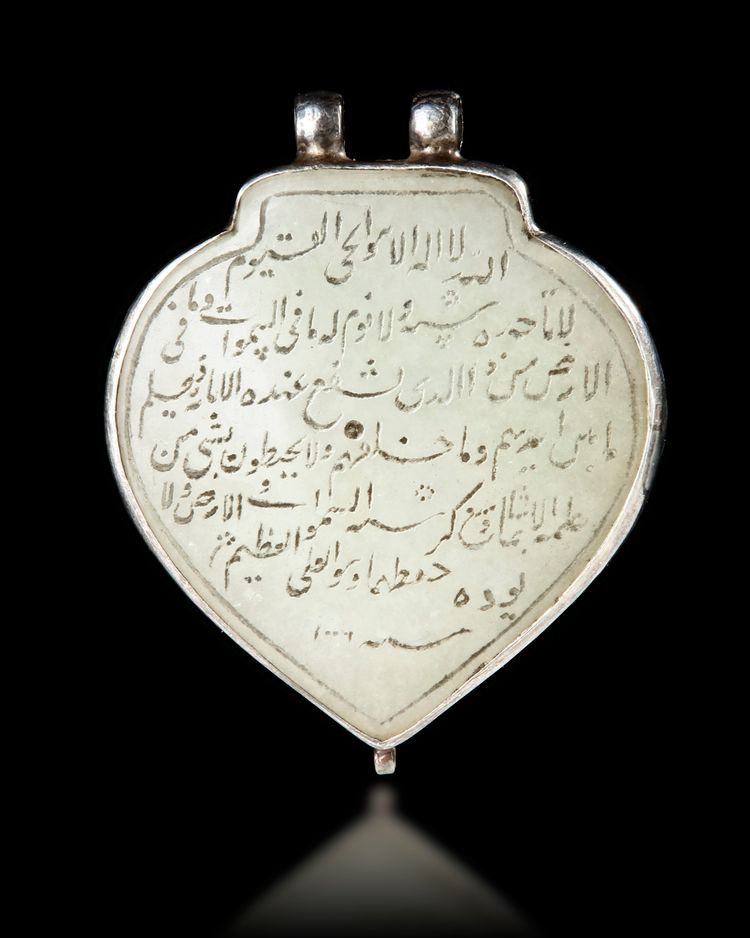 الله لا اله الا هو الحی القیوم
لا تاخذه سنه و لا نوم له ما فی السموات و ما فی
الارض من ذا الذی یشفع عنده الا باذنه یعلم
ما بین ایدیهم و ما خلفهم و لا یحیطون بشی من
علمه الا بما شا وسع کرسیه السموات و الارض و لا
یوده حفظهما و هو العلی العظیم
سنه ١٠٠٦